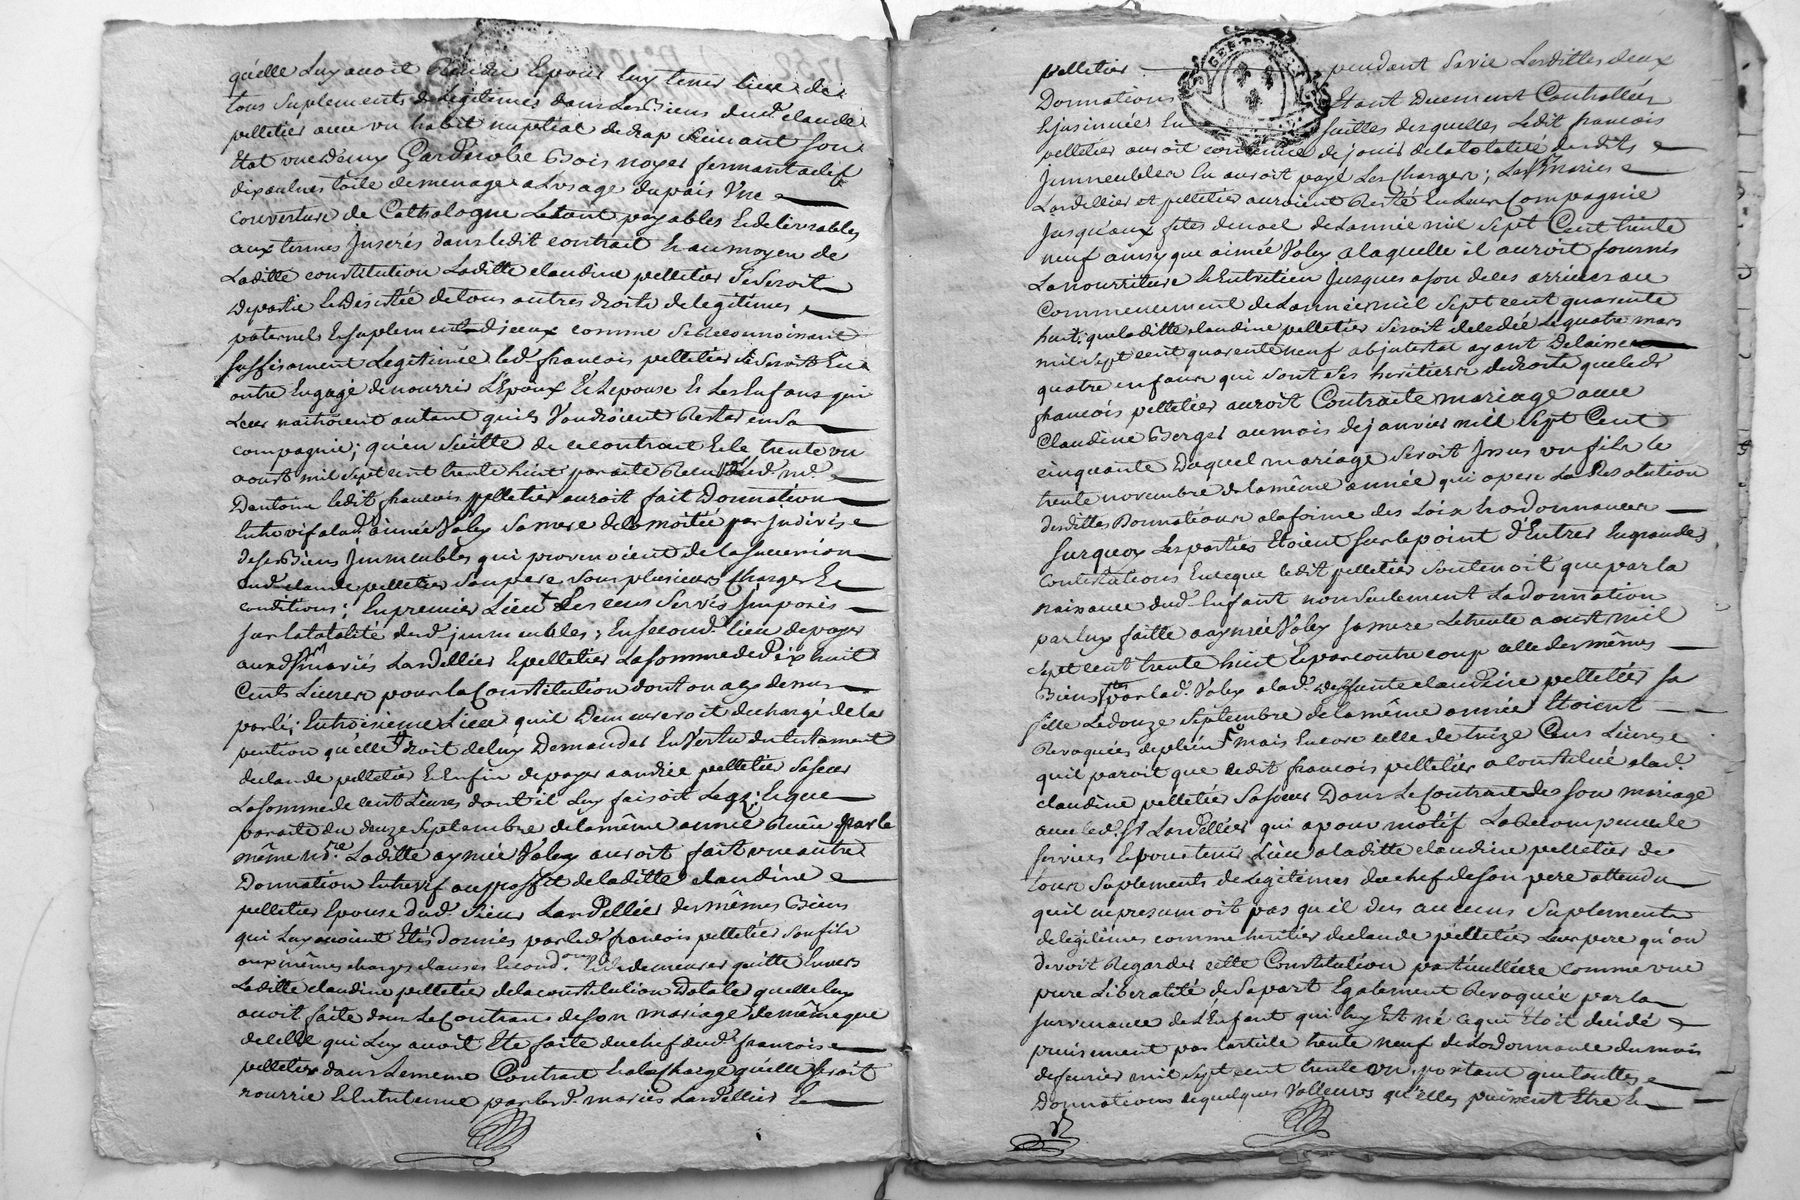 qu'elle luy avoit Rendu Epour luy tenir lieu de
tous suplements de Legitimes dans Les Biens dud. claude
pelletier avec un habit nuptial de drap suivant son
Etat une deux Garderobe Bois noyer fermant a clef
dix aulnes toile de menage a lusage du païs Une
couverture de Cathalogne Le tout payables Et delivrables
aux termes Jnserés dans ledit contrait Et au moyen de
Laditte constitution Laditte claudine pelletier Se Seroit
Departie Et Desistée de tous autres droits de legitimes
paternels Et suplements d'iceux comme Se Reconnoissant
suffisament Legitimée led. francois pelletier Se Seroit En
outre Engagé de nourri L'Epoux Et L'epouse Et Les Enfans qui
Leur naitroient autant qu'ils Voudroient Rester en Sa
compagnie; qu'en Suitte de ce contrait Et le trente un
aoust mil sept cent trente huit par acte Recu led. me.
Dantoine ledit francois pelletier auroit fait Donnation
Entrevif a lad. aimée Valey Sa mere de la moitié par jndivis
de ses Biens Jmmeubles qui provenoient de la succession
dud. claude pelletier Son pere Sous plusieurs Charges Et
conditions; En premier Lieu des cens Servis Jmposés
sur la totalité desd. jmmeubles; En second. lieu de payer
auxd. mariés Lardellier Et pelletier La somme de Dix huit
Cents Livres pour la Constitution dont on a cy dessus
parlé; En troisieme Lieu qu'il Demeureroit dechargé de la
pention qu'elle Etoit de luy Demander En Vertu du testament
de claude pelletier Et Enfin de payer a andrée pelletier Sa sœur
La somme de cent Livres dont il Luy faisoit Legs; Et que
par acte du douze Septembre de la même année Recûe par le
même nre. Laditte aymée Valey auroit fait une autre
Donnation Entrevif au proffit de laditte claudine
pelletier Epouse dud. Sieur Lardellier des mêmes Biens
qui Luy avoient Etés donnés par led. francois pelletier Son fils
aux mêmes charges clauses Et cond.ons Et de demeurer quitte Envers
Laditte claudine pelletier de la constitution Dotale qu'elle luy
avoit faite dans Le Contrait de son mariage de même que
de celle qui Luy avoit Eté faite du chef dud. francois
pelletier dans Le meme Contrait Et a la charge qu'elle Seroit
nourrie Et Entretenue par lesd. mariés Lardellier Et
pelletier pendant Sa vie Lesdittes deux
Donnations Etant Duement Controllées
Et jnsinuées En suittes desquelles Ledit francois
pelletier auroit continué de jouir de la totalité desdits
Jmmeubles En auroit payé Les Charges; Les mariés
Lardellier et pelletier auroient Resté En Leur Compagnie
Jusqu'aux fetes de noel de Lannée mil Sept Cent trente
neuf ainsy que aimée Valey a laquelle il auroit fournis
La nourriture Et Entretien Jusques a son deces arrivé au
Commencement de Lannée mil Sept cent quarente
huit; que laditte claudine pelletier Seroit decedée Le quatre mars
mil Sept cent quarente neuf ab jntestat ayant Delaissé
quatre enfans qui sont Ses heritiers de droits que led.
francois pelletier auroit Contraité mariage avec
Claudine Berger au mois de janvier mil Sept Cent
cinquante Duquel mariage Seroit Jssus un fils le
trente novembre de la même année qui opere La Resolution
desdittes Donnations a la forme des Loix Et ordonnances
Sur quoy Les parties Etoient Sur le point D'Entrer En grandes
Contestations En ce que ledit pelletier Soutenoit que par la
naissance dud. Enfant non seulement La donnation
par luy faitte a aymée Valey Sa mere Le trente aoust mil
Sept cent trente huit Et par contre coup celle des mêmes
Biens par lad. Valey a lad. deffunte claudine pelletier Sa
fille Le douze Septembre de la même année Etoient
Revoquées de plein mais Encore celle de treize Cens Livres
qu'il paroit que ledit francois pelletier a Constitué a lad.
claudine pelletier Sa sœur Dans Le Contrait de Son mariage
avec led. Sr. Lardellier qui a pour motif La Recompence de
Services Et pour tenir Lieu a laditte claudine pelletier de
tous Suplements de Legitimes du chef de Son pere attendu
qu'il ne presumoit pas qu'il dus aucuns Suplements
de legitimes comme heritier de claude pelletier Leur pere qu'on
devoit Regarder cette Constitution particulliere comme une
pure Liberalité de Sa part Egalement Revoquée par la
survenance de L'Enfant qui luy Est né ce qui Etoit decidé
precisement par larticle trente neuf de Lordonnance du mois
de fevrier mil Sept cent trente un, portant que touttes
Donnations de quelques Valleurs qu'elles puissent Etre Et